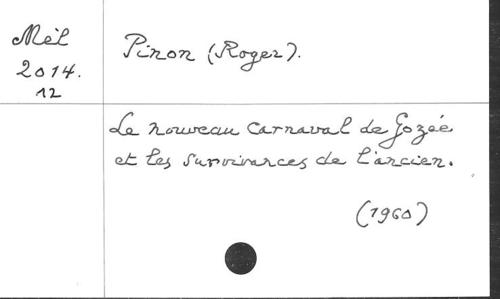 Mél
2014.
12
Pinon (Roger).
Le nouveau carnaval de Gozée
et les survivances de l'ancien.
(1960)